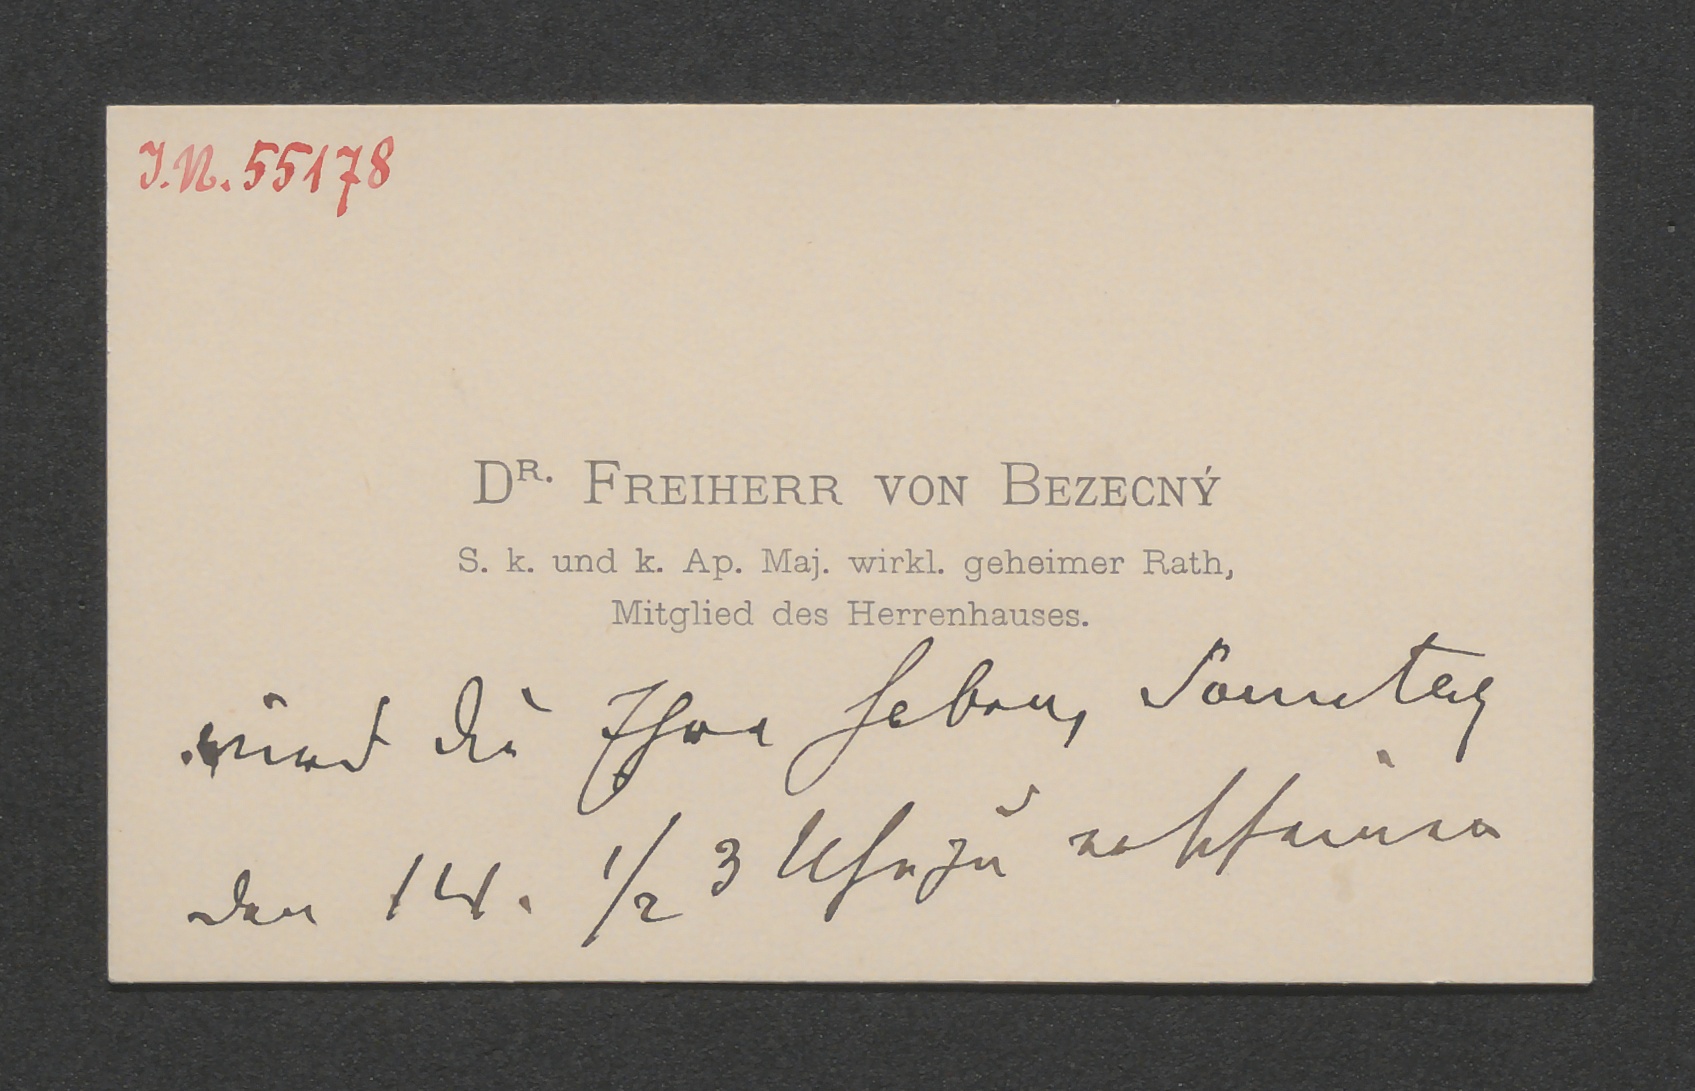 I.N. 55178
DR. FREIHERR VON BEZECNÝ
S. k. und k. Ap. Maj. wirkl. geheimer Rath,
Mitglied des Herrenhauses.
wird die Ehre haben, Sonntag
den 14. 1/2 3 Uhr zu erscheinen